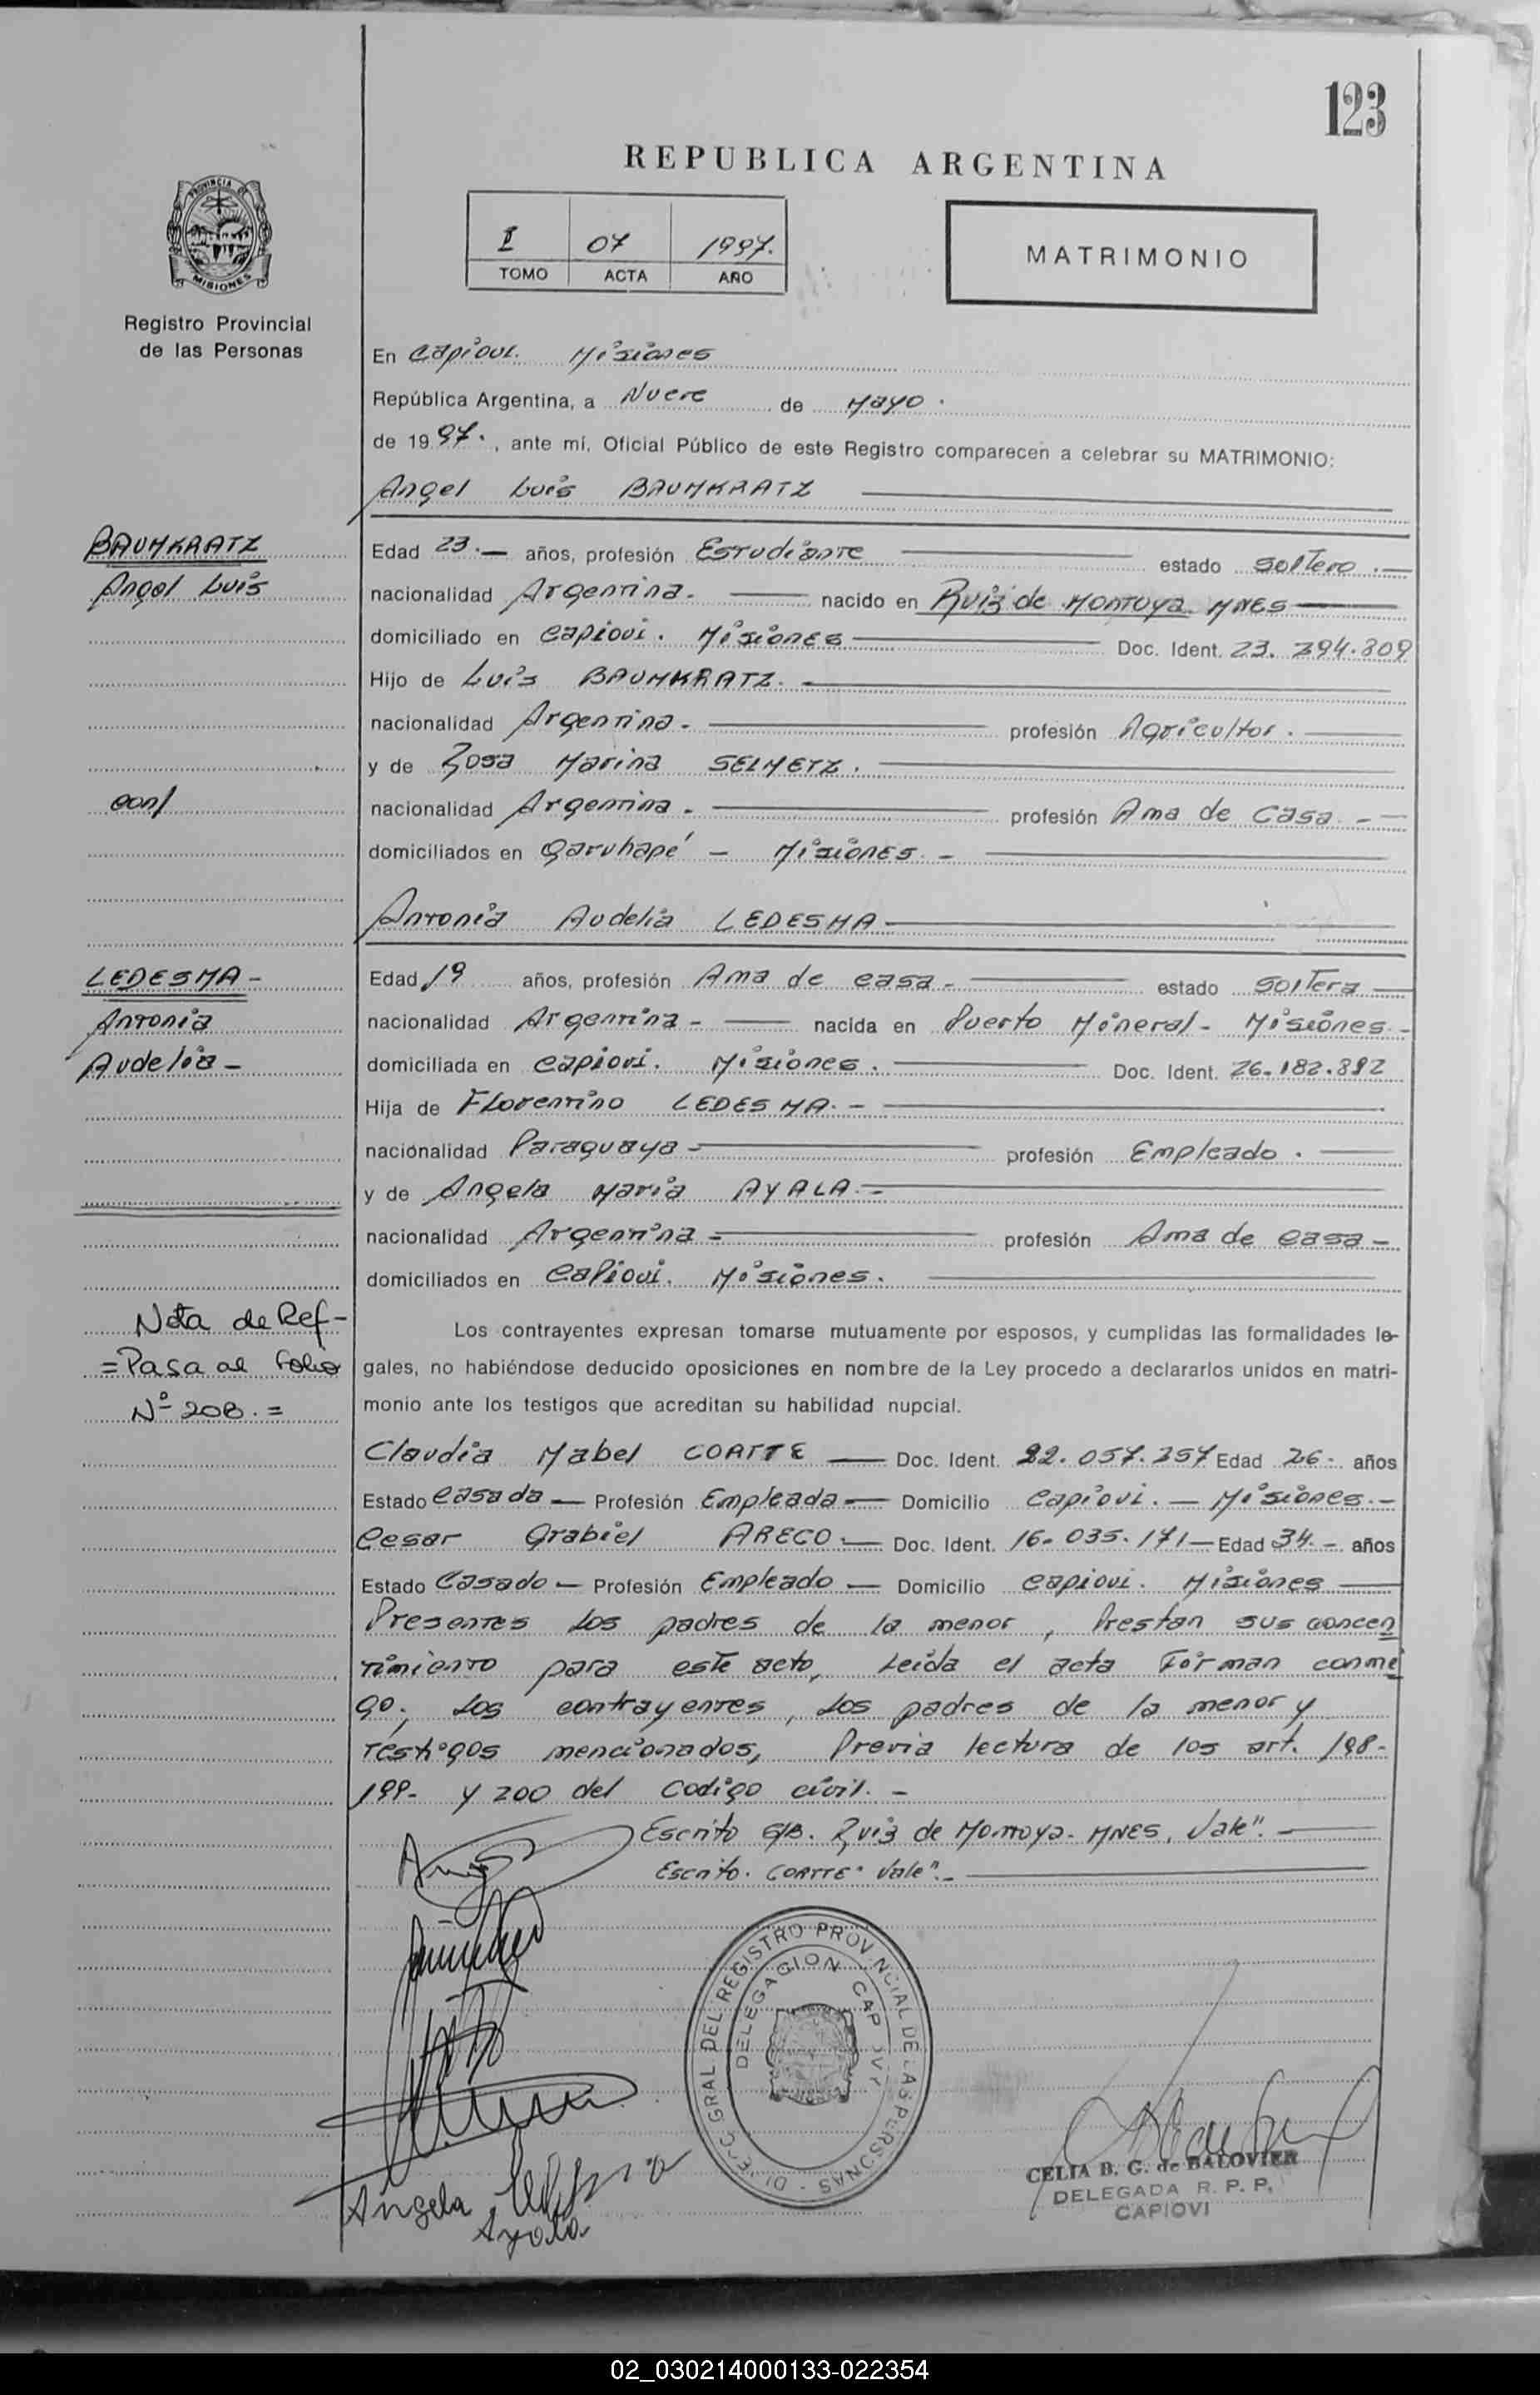 123
REPUBLICA ARGENTINA
PROVINCIA DE
MISIONES
Registro Provincial
de las Personas
I 07 1997.
TOMO ACTA AÑO
MATRIMONIO
En Capiovi. Misiones
República Argentina, a Nueve de Mayo.
de 1997., ante mí, Oficial Público de este Registro comparecen a celebrar su MATRIMONIO:
Angel Luis BAUMKRATZ
BAUMKRATZ
Angel Luis
Edad 23.— años, profesión Estudiante estado soltero.—
nacionalidad Argentina. nacido en Ruiz de Montoya MNES
domiciliado en Capiovi. Misiones Doc. Ident. 23. 294.809
Hijo de Luis BAUMKRATZ.
nacionalidad Argentina. profesión Agricultor.
y de Rosa Marina SELMETZ.
con/
nacionalidad Argentina. profesión Ama de casa.-
domiciliados en Garuhapé - Misiones.-
Antonia Audelia LEDESMA
LEDESMA-
Antonia
Audelia-
Edad 19 años, profesión Ama de casa- estado soltera
nacionalidad Argentina- nacida en Puerto Mineral- Misiones.-
domiciliada en Capiovi. Misiones. Doc. Ident. 26.182.892
Hija de Florentino LEDESMA.-
nacionalidad Paraguaya- profesión Empleado.
y de Angela Maria AYALA.-
nacionalidad Argentina- profesión Ama de casa-
domiciliados en Capiovi. Misiones.
Nota de Ref-
=Pasa al folio
Nº 208.=
Los contrayentes expresan tomarse mutuamente por esposos, y cumplidas las formalidades le-
gales, no habiéndose deducido oposiciones en nombre de la Ley procedo a declararlos unidos en matri-
monio ante los testigos que acreditan su habilidad nupcial.
Claudia Mabel COATTE — Doc. Ident. 22.057.257 Edad 26.- años
Estado casada — Profesión Empleada — Domicilio Capiovi.— Misiones.-
Cesar Grabiel ARECO.— Doc. Ident. 16.035.171— Edad 34.- años
Estado Casado — Profesión Empleado — Domicilio Capiovi. Misiones
Presentes los padres de la menor, Prestan sus concen
timiento para este acto, Leida el acta Firman conmi
go; Los contrayentes, Los padres de la menor y
testigos mencionados, Previa lectura de los art. 198-
199- y 200 del Codigo civil.-
Escrito S/B. Ruiz de Montoya- MNES. Vale".
Escrito. COATTE" Vale".-
DIRECC GRAL DEL REGISTRO PROVINCIAL DE LAS PERSONAS
DELEGACION CAPIOVI
Angela Ledesma
Ayala
CELIA B. G. de BALOVIER
DELEGADA R. P. P.
CAPIOVI
02_030214000133-022354